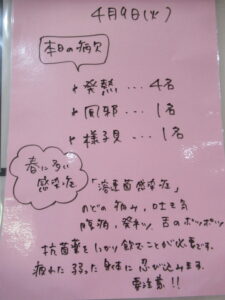 4月9日(火)
本日の病欠
発熱...4名
風邪...1名
様子見...1名
春に多い
感染症
「溶連菌感染症」
のどの痛み,吐き気
腹痛,発和,舌のポツポツ
抗菌薬をしっかり飲むことが必要です。
疲れた 弱った 身体に忍び込みます。
要注意!!